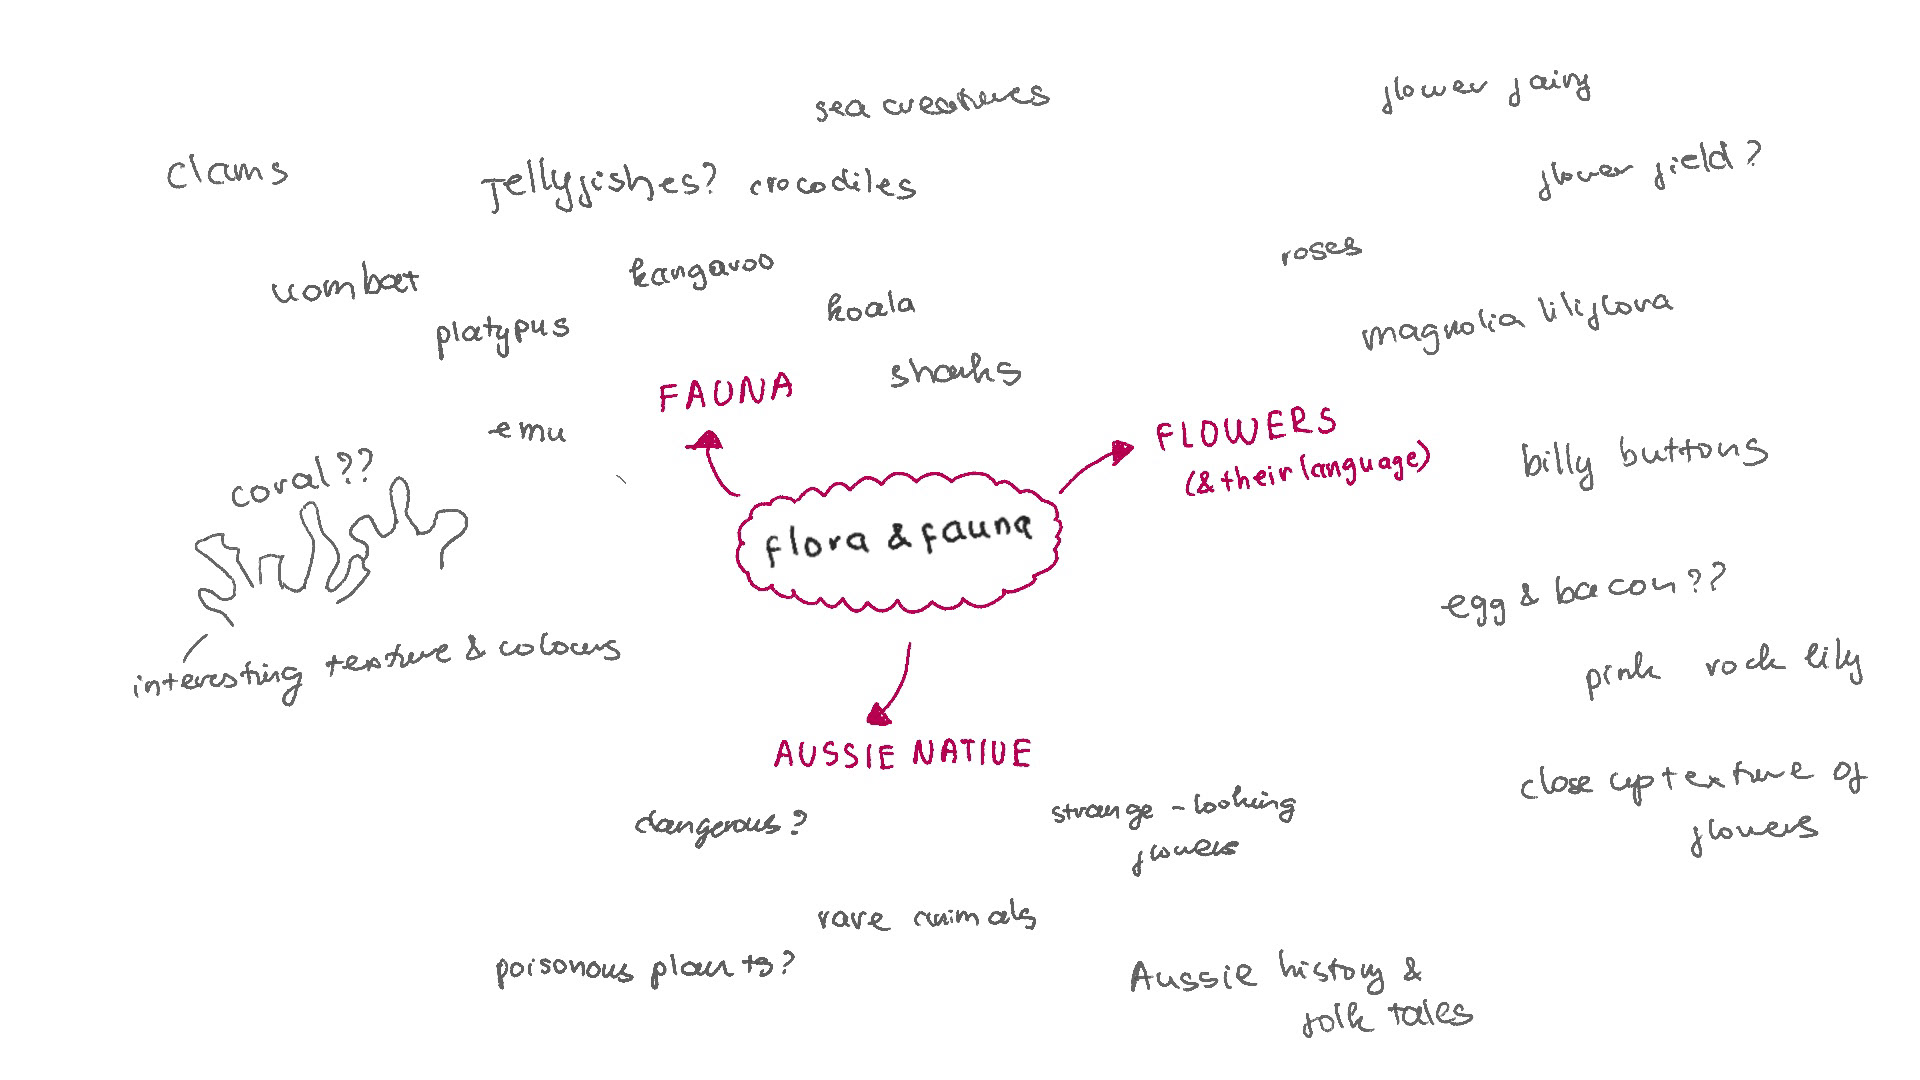 sea creatures
flower fairy
clams
Jellyfishes?
crocodiles
flower field?
wombat
kangaroo
roses
platypus
koala
magnolia liliflora
FAUNA
sharks
emu
FLOWERS
(& their language)
billy buttons
coral??
flora & fauna
egg & bacon??
interesting texture & colours
pink rock lily
AUSSIE NATIVE
dangerous?
strange-looking
flowers
close up texture of
flowers
rare animals
poisonous plants?
Aussie history &
folk tales